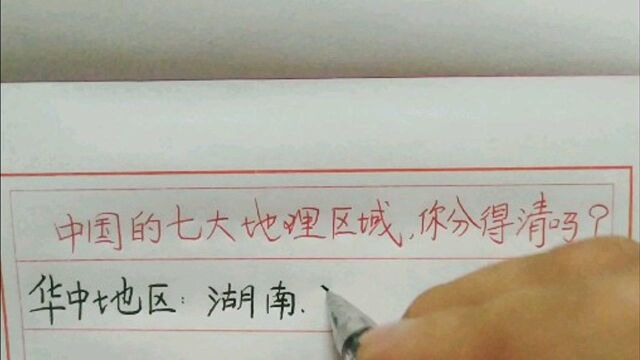 中国的七大地理区域,你分得清吗?
华中地区:湖南.